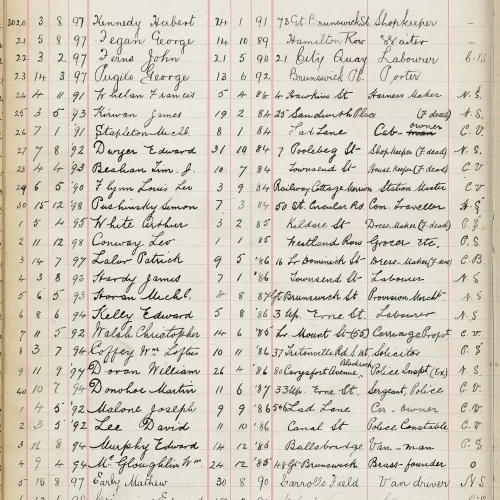 3020 3 8 97 Kennedy Hubert 24 1 91 73 Gt. Brunswick St Shopkeeper –
21 5 8 97 Fegan George 14 10 89 Hamilton Row Waiter –
22 3 2 97 Ferns John 21 5 90 21 City Quay Labourer
23 14 3 97 Pugils George 13 6 92 Brunswick Pl. Porter
24 4 11 91 Whelan Francis 5 4 86 4 Hawkins St Harness Maker N.S.
25 3 5 93 Kirwan James 19 2 84 25 Sandwith Place (F dead) N.S.
26 7 1 91 Stapleton Michl. 8 1 84 Lad Lane Cab-owner C.V
27 7 8 92 Dwyer Edward 31 10 84 7 Poolbeg St Shopkeeper (F dead) N.S.
28 4 4 93 Beahan Tim. J. 10 7 84 Townsend St Housekeeper (F dead) C.V
29 6 5 90 Flynn Louis Leo 3 9 84 Railway Cottage Merrion Station Master C.V
30 15 12 98 Pushinsky Simon 7 3 84 50 St. Circular Rd Com. Traveller
1 5 4 95 White Arthur 3 2 85 Kildare St Dress-Maker (F dead) P.S.
2 11 12 98 Conway Leo 1 1 85 Westland Row Grocer Etc. P.S.
3 14 7 97 Lalor Patrick 9 5 '86 16 Lr Dominick St Dress-Maker C.B
4 3 8 93 Hardy James 7 1 '86 Townsend St Labourer N.S.
5 6 5 93 Horan Michl. 4 8 87 Gt Brunswick St Provision Mercht N.S.
6 8 6 94 Kelly Edward 5 8 '86 3 Up. Erne St. Labourer N.S.
7 11 5 92 Walsh Christopher 14 6 '85 Lr. Mount St (55) Carriage Propt C.V.
8 3 7 94 Coffey Wm Loftus 10 11 '86 37 Tritonville Rd S Mt. Solicitor P.S.
9 11 9 97 Doran William 26 4 '86 80 Carysfort Avenue, Blackrock Police Inspt (Ex) N.S.
40 10 7 94 Donohoe Martin 11 6 '87 33 Up. Erne St. Sergeant, Police C.V.
1 4 5 '92 Malone Joseph 9 9 '86 56 Lad Lane Car-owner C.V.
2 3 5 '92 Lee David 11 10 '86 Canal St Police Constable C.V.
3 16 8 94 Murphy Edward 14 12 '86 Ballsbridge Van-man P.S.
4 9 4 94 McGloughlin Wm 24 12 '85 48 Gt Brunswick Brass-founder O
5 18 8 97 Early Mathew 30 8 90 Carrolls Field Van driver N S